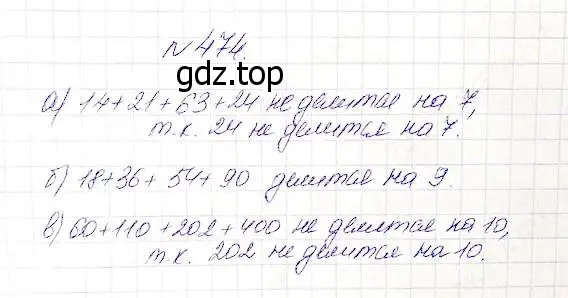 № 474.
gdz.top
а) 14+21+63+24 не делится на 7,
т.к. 24 не делится на 7.
б) 18+36+54+90 делится на 9.
в) 60+110+202+400 не делится на 10,
т.к. 202 не делится на 10.